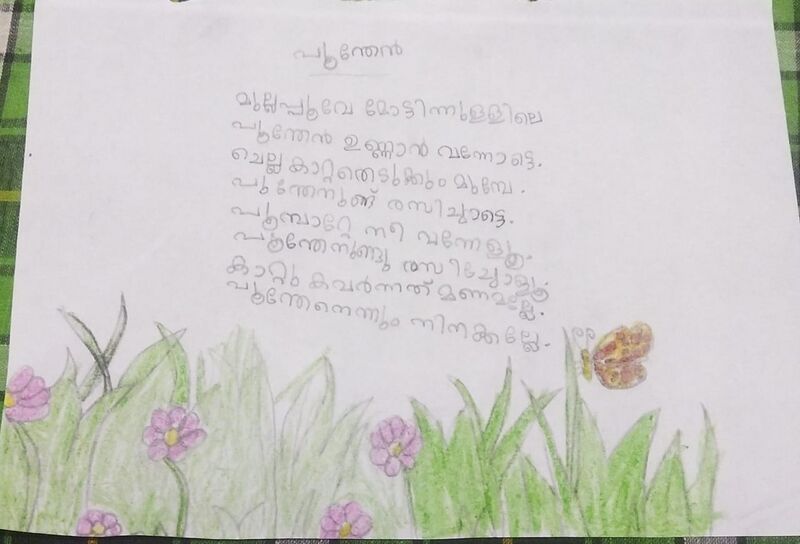 പൂന്തേൻ
മുല്ലപ്പൂവേ മോട്ടിന്നുള്ളിലെ
പൂന്തേൻ ഉണ്ണാൻ വന്നോട്ടെ.
ചെല്ല കാറ്റതെടുക്കും മുമ്പേ.
പൂന്തേനുണ്ട് രസിച്ചോട്ടെ.
പൂമ്പാറ്റേ നീ വന്നോളൂ.
പൂന്തേനുണ്ടു രസിച്ചോളൂ.
കാറ്റു കവർന്നത് മണമല്ലേ.
പൂന്തേനെന്നും നിനക്കല്ലേ.